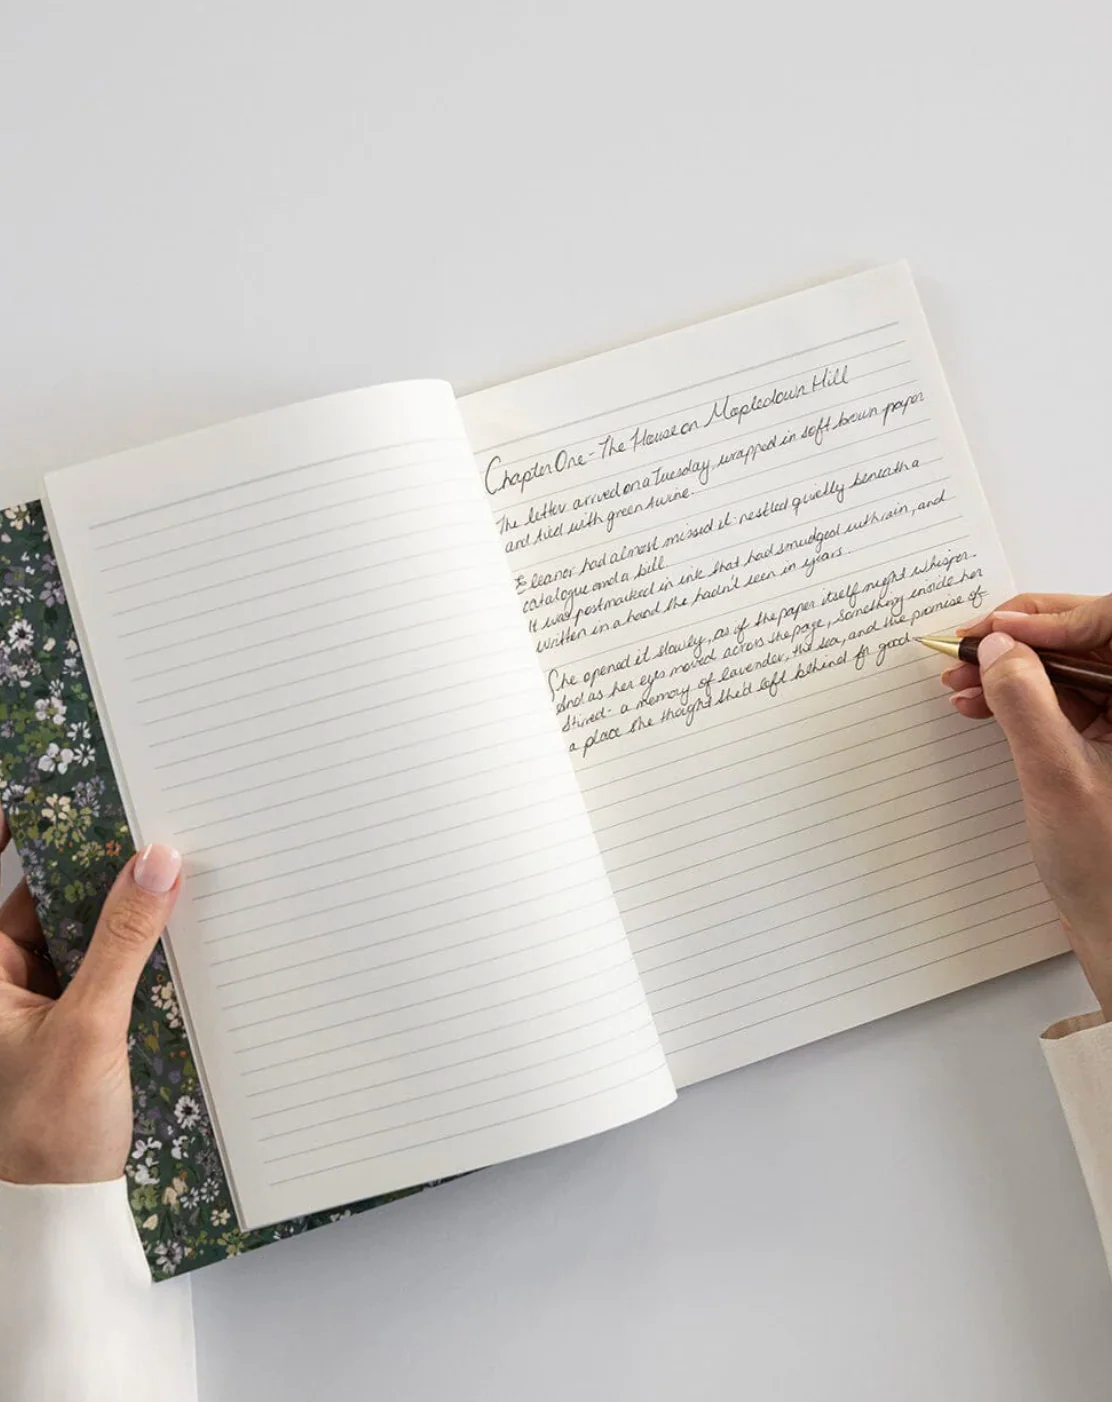 Chapter One - The House on Mapledown Hill
The letter arrived on a Tuesday, wrapped in soft brown paper
and tied with green twine.
Eleanor had almost missed it - nestled quietly beneath a
catalogue and a bill.
It was postmarked in ink that had smudged with rain, and
written in a hand she hadn't seen in years.
She opened it slowly, as if the paper itself might whisper.
And as her eyes moved across the page, something inside her
stirred - a memory of lavender, the sea, and the promise of
a place she thought she'd left behind for good.